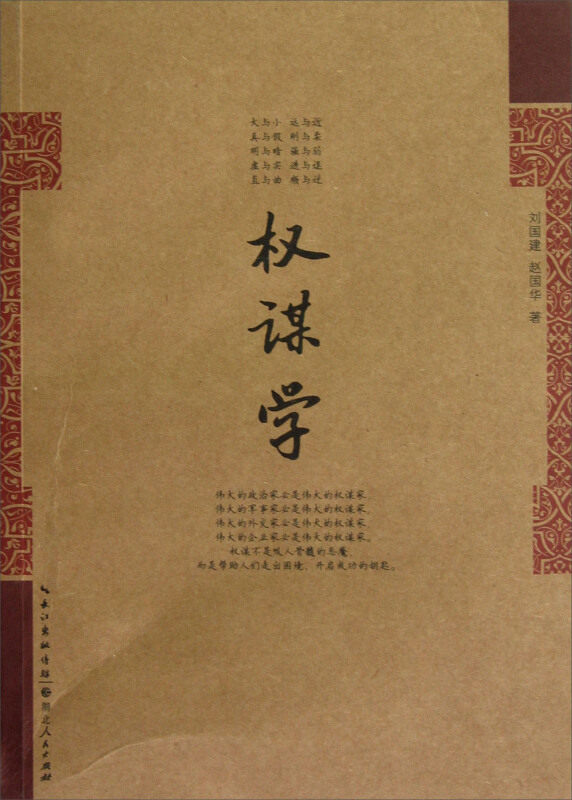 大与小 远与近
真与假 刚与柔
明与暗 强与弱
虚与实 进与退
直与曲 顺与逆
权谋学
刘国建 赵国华 著
伟大的政治家必是伟大的权谋家、
伟大的军事家必是伟大的权谋家、
伟大的外交家必是伟大的权谋家、
伟大的企业家必是伟大的权谋家。
权谋不是吸人骨髓的恶魔、
而是帮助人们走出困境、开启成功的钥匙。
长江出版传媒
湖北人民出版社